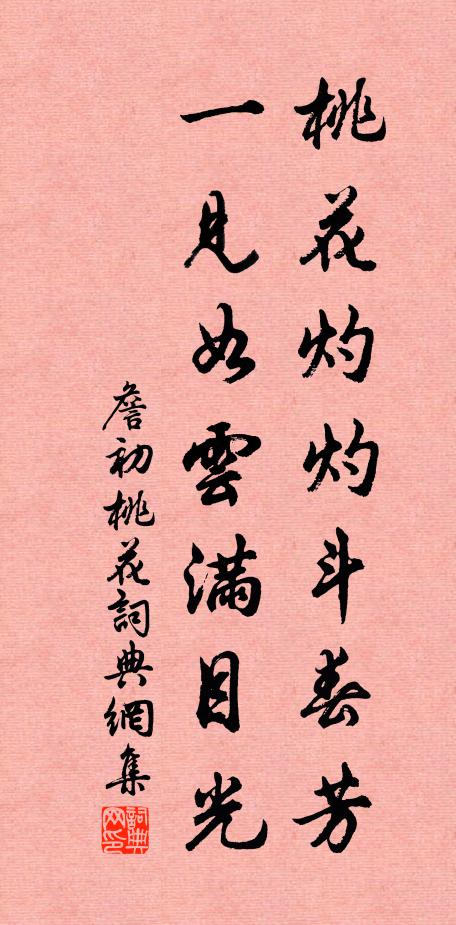 桃花灼灼斗春芳
一見如雲滿目光
詹初桃花詞典網集
詞典网印